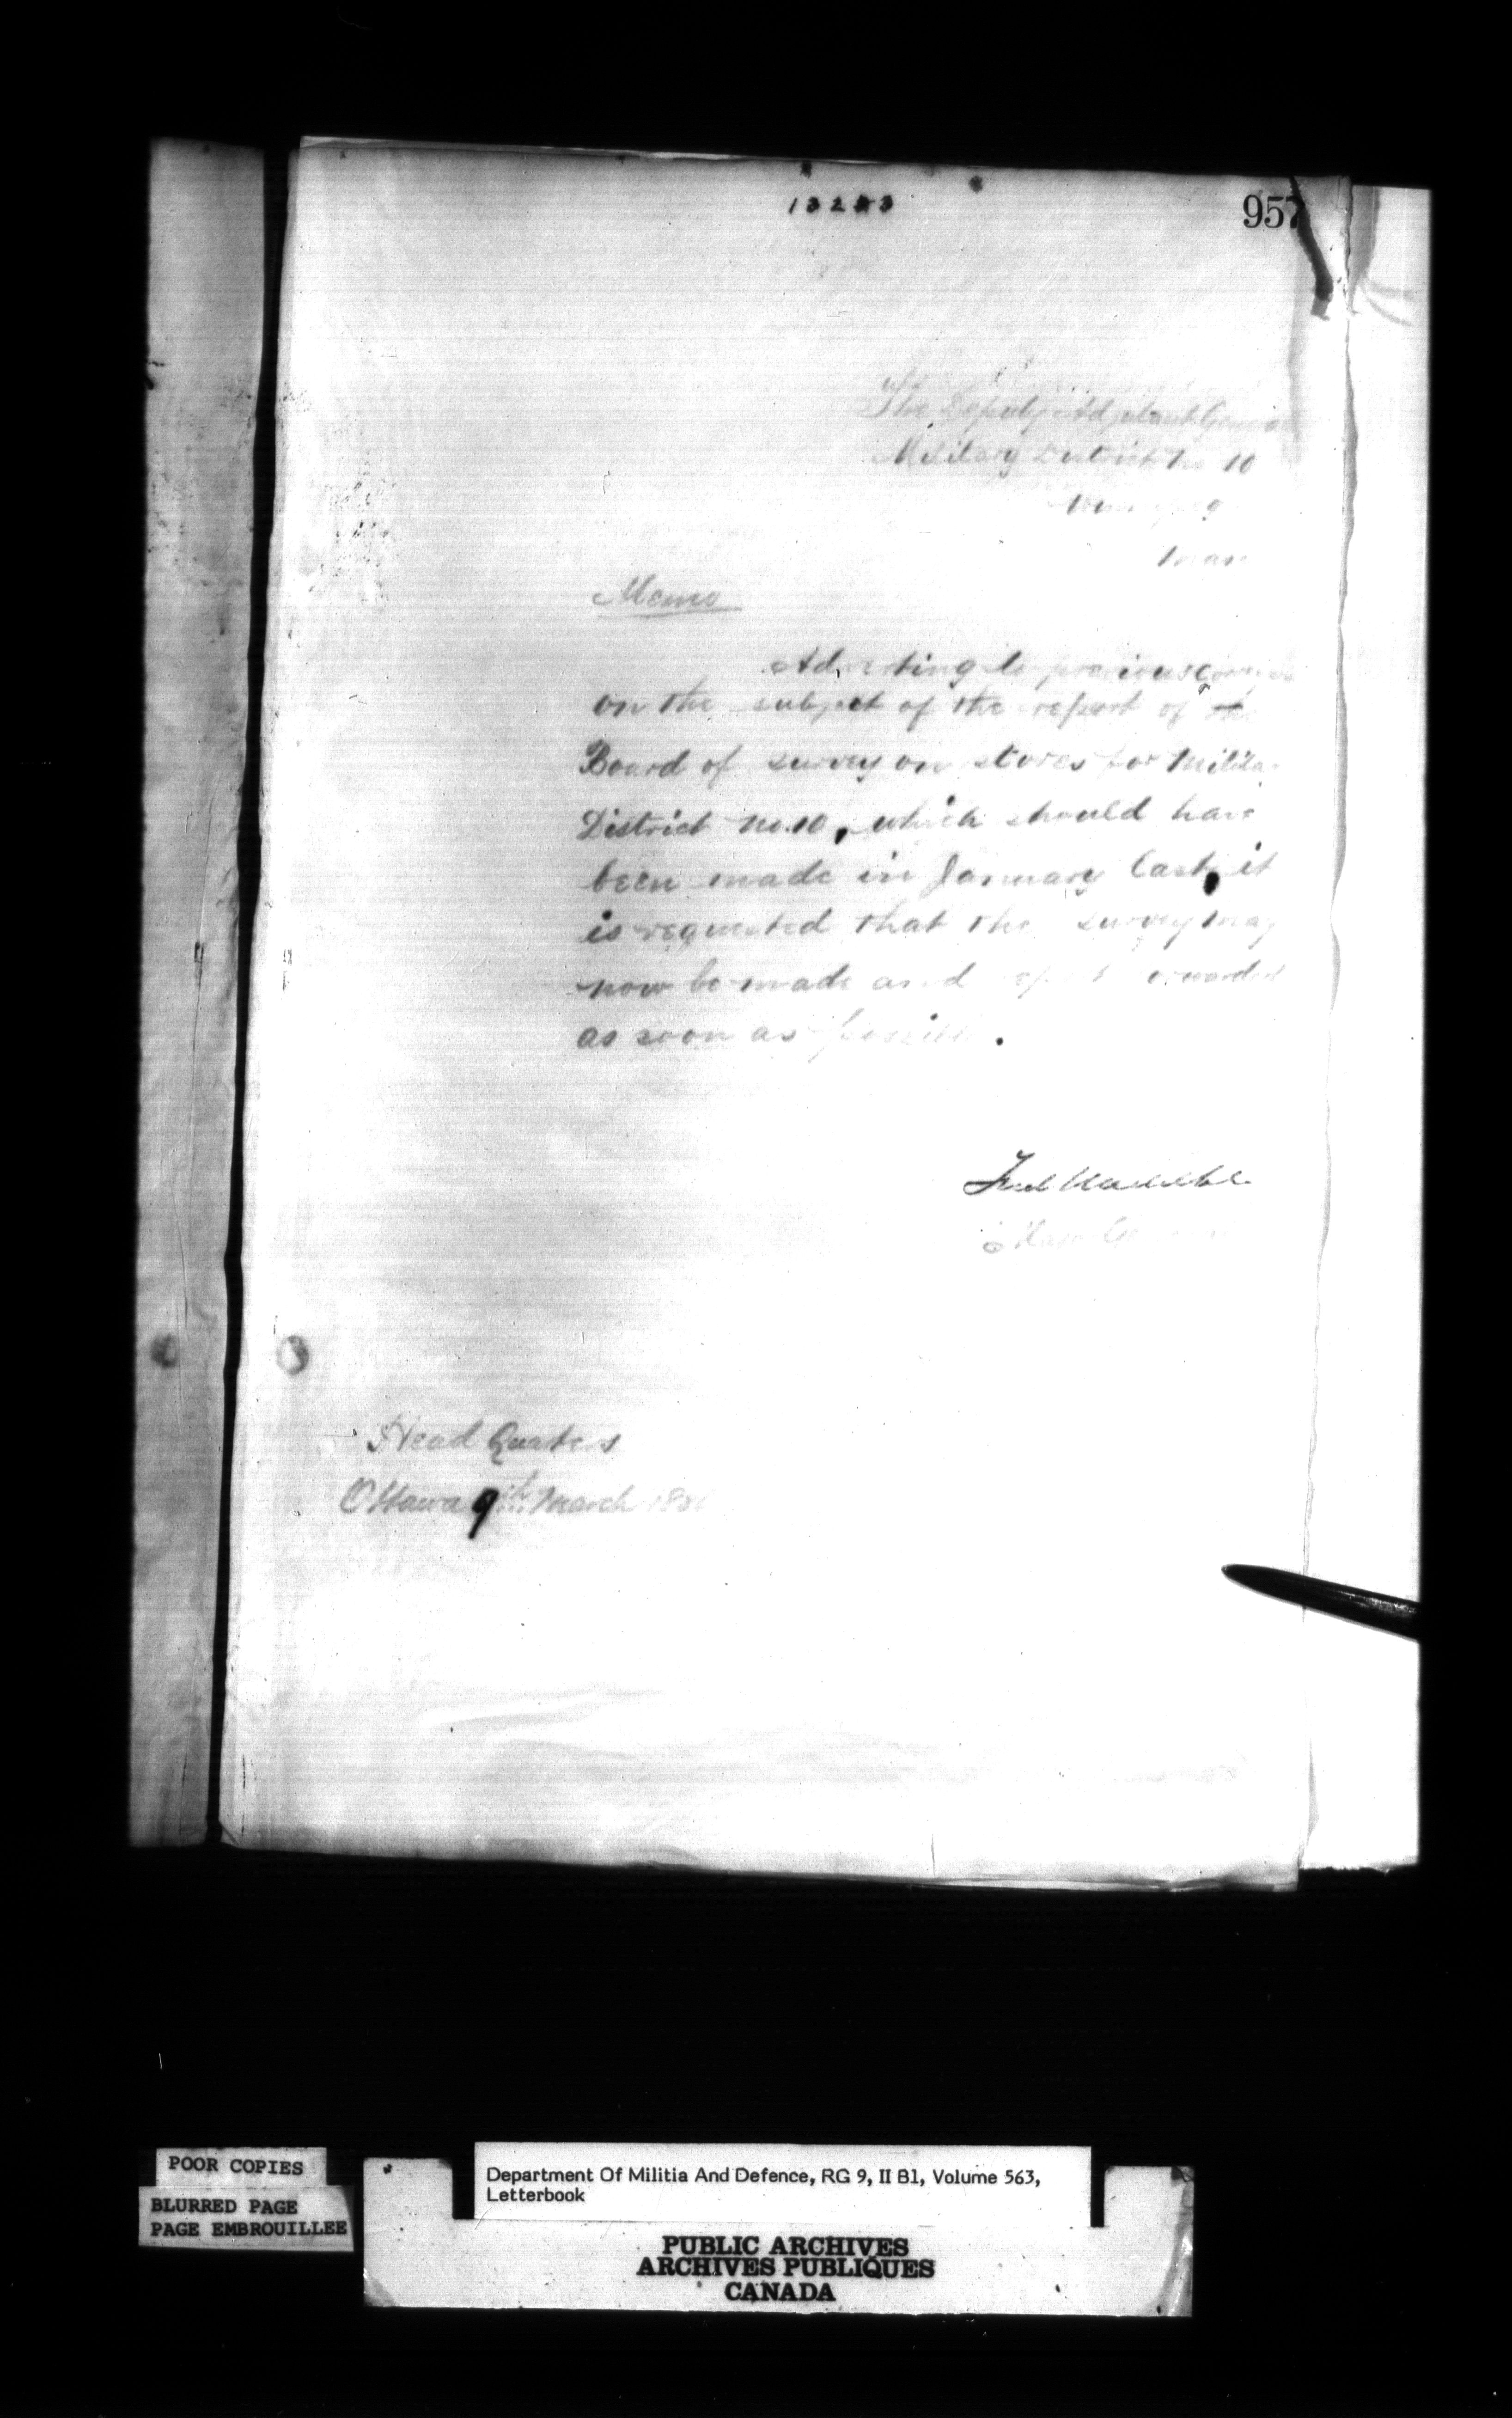 957
The Deputy Adjutant General
Military District No 10
Winnipeg
Man
Memo
Adverting to previous
on the subject of the report of the
Board of survey on stores for
District No. 10, which should have
been made in January last, it
is requested that the survey may
now be made and forwarded
as soon as possible.
Head Quaters
Ottawa 9th March
POOR COPIES
BLURRED PAGE
PAGE EMBROUILLEE
Department Of Militia And Defence, RG 9, II B1, Volume 563,
Letterbook
PUBLIC ARCHIVES
ARCHIVES PUBLIQUES
CANADA